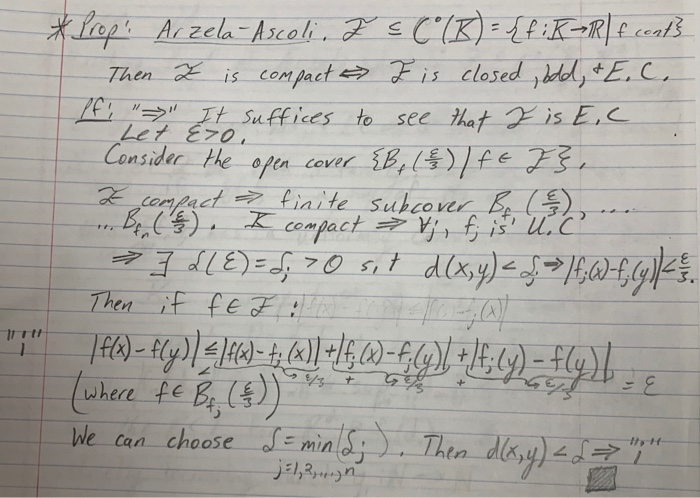 * Prop: Arzela-Ascoli. 𝓕 ⊆ C°(K) = {f: K→ℝ | f cont}
Then 𝓕 is compact ⇔ 𝓕 is closed, bdd, + E.C.
Pf: "⇒" It suffices to see that 𝓕 is E.C
Let ε>0.
Consider the open cover {B_f(ε/3) | f ∈ 𝓕}.
𝓕 compact ⇒ finite subcover B_{f_1}(ε/3), ....
... B_{f_n}(ε/3). K compact ⇒ ∀j, f_j is U.C
⇒ ∃ δ(ε) = δ_j > 0 s.t d(x,y) < δ_j ⇒ |f_j(x) - f_j(y)| < ε/3.
Then if f ∈ 𝓕 :
"!" |f(x) - f(y)| ≤ |f(x) - f_j(x)| + |f_j(x) - f_j(y)| + |f_j(y) - f(y)|
< ε/3 + < ε/3 + < ε/3 = ε
(where f ∈ B_{f_j}(ε/3))
We can choose δ = min(δ_j). Then d(x,y) < δ ⇒ "!"
j=1,2,...,n